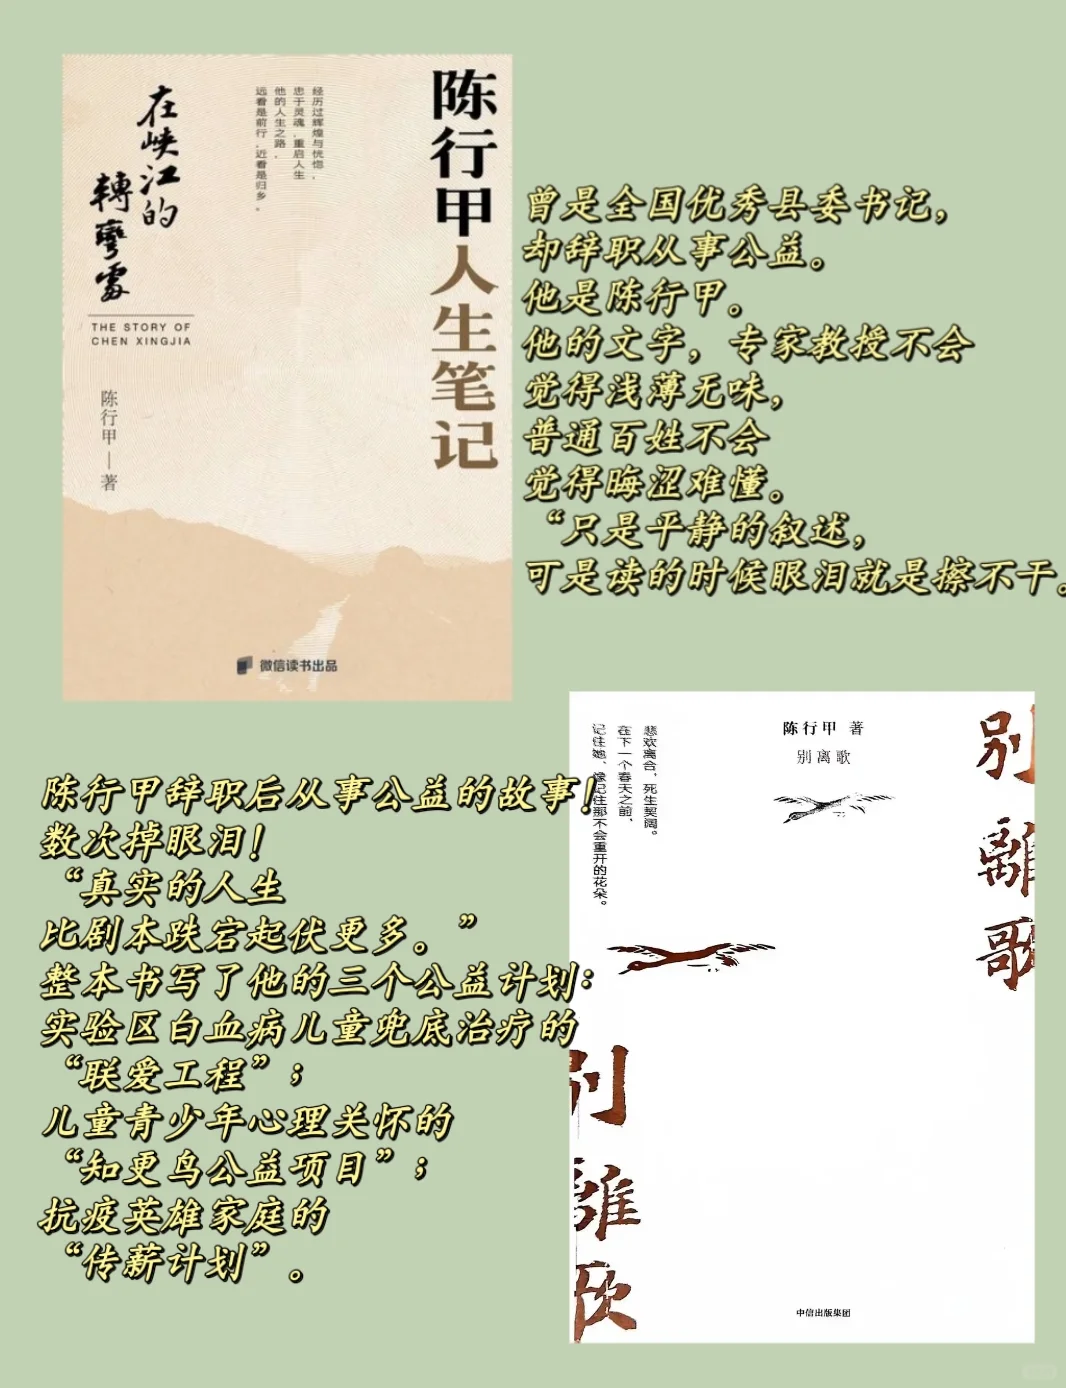 陈行甲人生笔记
经历过辉煌与恍惚，
忠于灵魂，重启人生
他的人生之路，
远看是前行，近看是归乡。
在峡江的
轉彎處
THE STORY OF
CHEN XINGJIA
陈行甲—著
微信读书出品
曾是全国优秀县委书记，
却辞职从事公益。
他是陈行甲。
他的文字，专家教授不会
觉得浅薄无味，
普通百姓不会
觉得晦涩难懂。
“只是平静的叙述，
可是读的时候眼泪就是擦不干。
陈行甲辞职后从事公益的故事！
数次掉眼泪！
“真实的人生
比剧本跌宕起伏更多。”
整本书写了他的三个公益计划：
实验区白血病儿童兜底治疗的
“联爱工程”；
儿童青少年心理关怀的
“知更鸟公益项目”；
抗疫英雄家庭的
“传薪计划”。
别離歌
陈行甲 著
别离歌
悲欢离合，死生契阔。
在下一个春天之前，
记住她，像记住那不会重开的花朵。
别離歌
中信出版集团